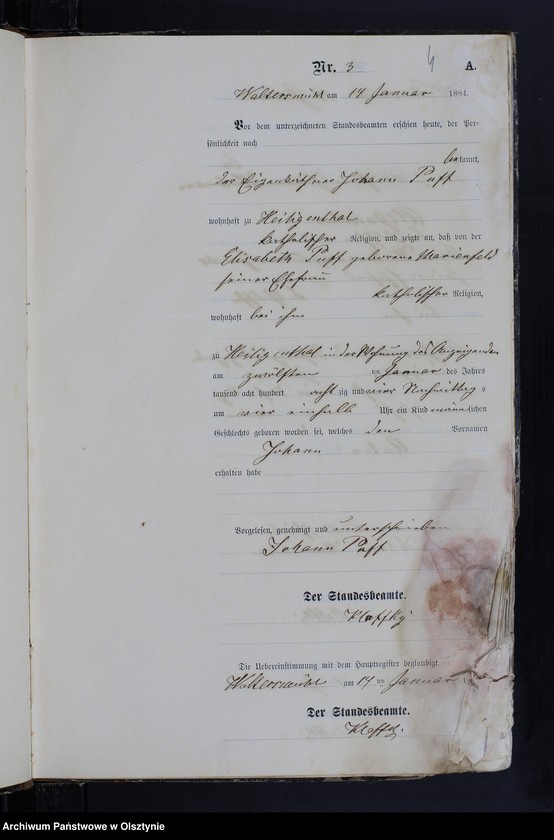 Nr. 3
4
A.
Waltersmühl am 14 Januar 1884.
Vor dem unterzeichneten Standesbeamten erschien heute, der Per-
sönlichkeit nach
bekannt,
der Eigenkäthner Johann Puff
wohnhaft zu Heiligenthal
katholischer Religion, und zeigte an, daß von der
Elisabeth Puff geborene Marienfeld
seiner Ehefrau
katholischer Religion,
wohnhaft bei ihm
zu Heiligenthal in der Wohnung des Anzeigenden
am zwölften ten Januar des Jahres
tausend acht hundert acht zig und vier Nachmittag s
um vier einhalb Uhr ein Kind männlichen
Geschlechts geboren worden sei, welches den Vornamen
Johann
erhalten habe
Vorgelesen, genehmigt und unterschrieben
Johann Puff
Der Standesbeamte.
Klaffky
Die Uebereinstimmung mit dem Hauptregister beglaubigt.
Waltersmühl am 14 ten Januar
Der Standesbeamte.
Archiwum Państwowe w Olsztynie